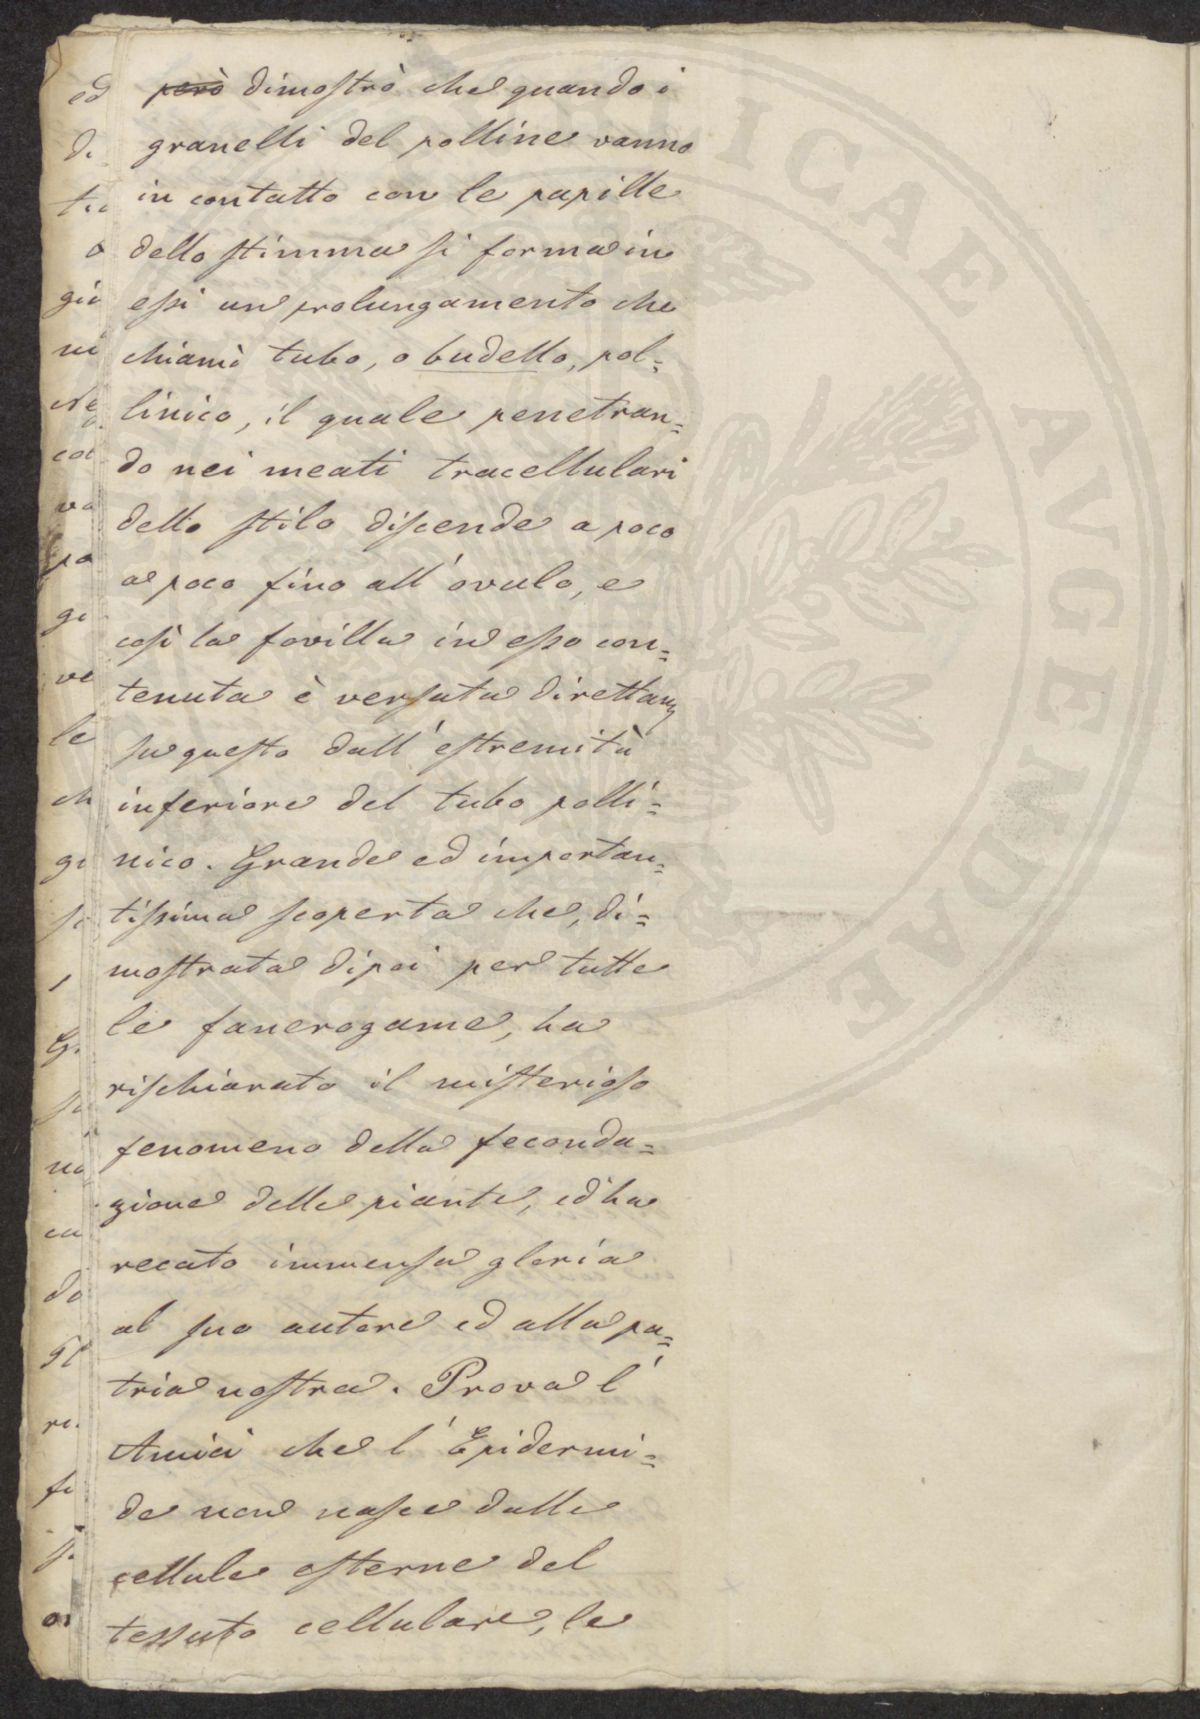 però dimostrò che quando i
granelli del polline vanno
in contatto con le papille
dello stimma si forma in
essi un prolungamento che
chiamò tubo, o budello, pol=
linico, il quale penetran=
do nei meati tracellulari
dello stilo discende a poco
a poco fino all'ovulo, e
così la fovilla in esso con=
tenuta è versata direttam
su questo dall'estremità
inferiore del tubo polli=
nico. Grande ed importan=
tissima scoperta che, di=
mostrata dipoi per tutte
le fanerogame, ha
rischiarato il misterioso
fenomeno della feconda=
zione delle piante, ed ha
recato immensa gloria
al suo autore ed alla pa=
tria nostra. Prova l'
Amici che l'Epidermi=
de non nasce dalle
cellule esterne del
tessuto cellulare, le
ed
di
o
gio
ni
Ne
col
va
po
ge
ve
le
ch
gi
si
,
G.
no
ca
do
re.
fe
on
PUBLICAE AVGENDAE